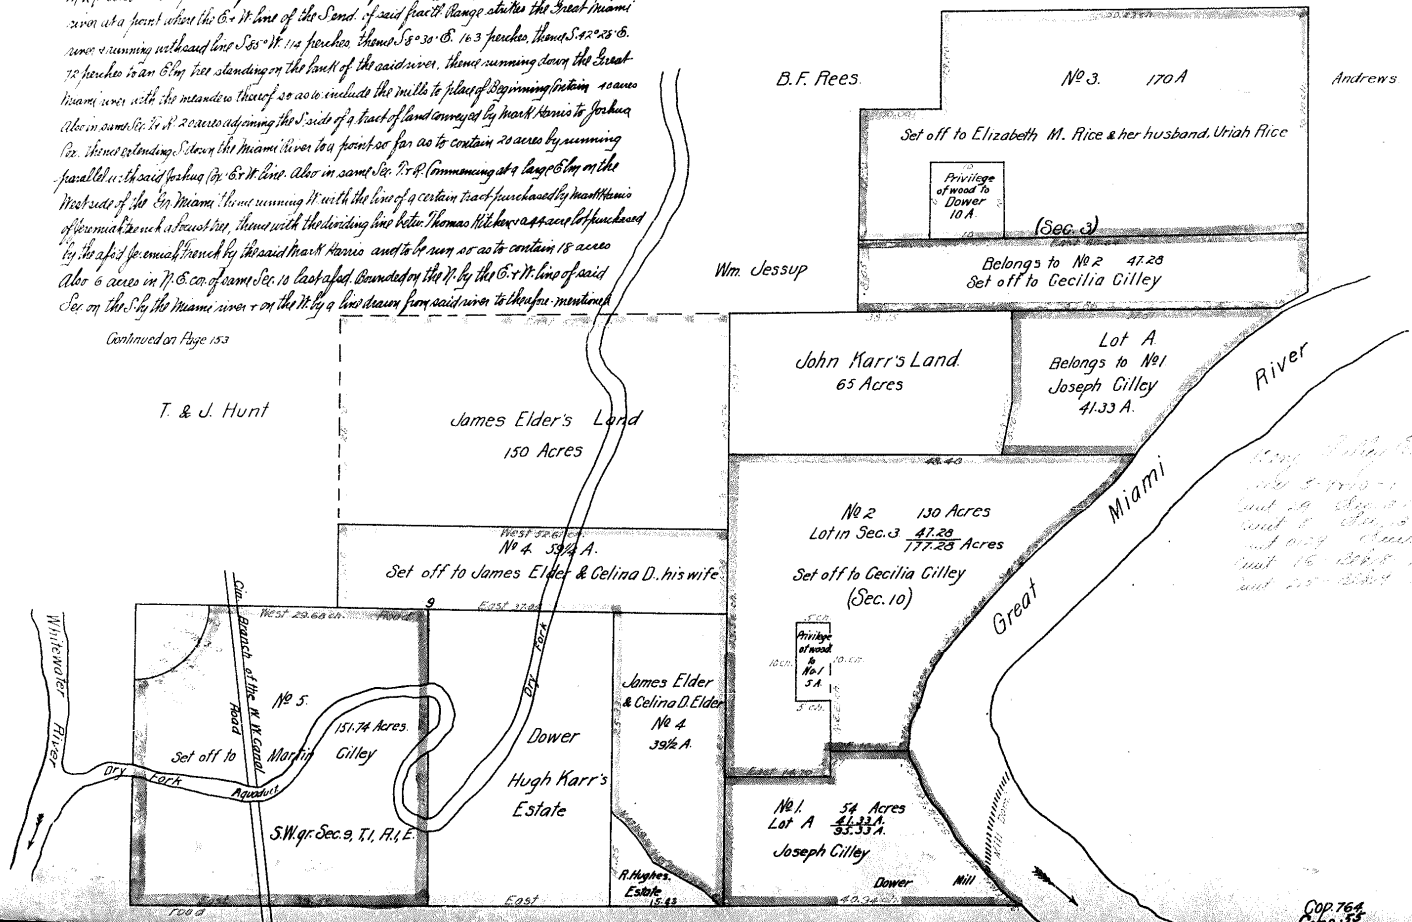 river at a point where the E. & W. line of the S. end. of said fracth Range strikes the Great Miami
river & running with said line S 85° W. 114 perches, thence S 8° 30' E. 163 perches, thence S. 42° 28' E.
72 perches to an Elm tree standing on the bank of the said river, thence running down the Great
Miami river with the meanders thereof so as to include the mills to place of Beginning Contain 40 acres
Also in same Sec. T. & R. 20 acres adjoining the S. side of a tract of land conveyed by Mark Harris to Joshua
Cox. thence extending S. down the Miami River to a point so far as to contain 20 acres by running
parallel with said Joshua Cox E. & W. line. Also in same Sec. T. & R. Commencing at a large Elm on the
West side of the Gr. Miami thence running W. with the line of a certain tract purchased by Mark Harris
of Jeremiah French a locust tree, thence with the dividing line betw. Thomas Kitchen & a 44 acre lot purchased
by the afsd Jeremiah French by the said Mark Harris and to be run so as to contain 18 acres
Also 6 acres in N.E. cor. of same Sec. 10 last afsd. Bounded on the N. by the E. & W. line of said
Sec. on the S. by the Miami river & on the W. by a line drawn from said river to the afore-mentioned
Continued on Page 153
B.F. Rees.
No 3. 170 A
Andrews
Set off to Elizabeth M. Rice & her husband, Uriah Rice
10
Privilege
of wood to
Dower
10 A.
10
(Sec. 3)
Wm. Jessup
Belongs to No 2 47.28
Set off to Cecilia Cilley
T. & J. Hunt
James Elder's Land
150 Acres
John Karr's Land.
65 Acres
Lot A.
Belongs to No 1
Joseph Cilley
41.33 A.
Great Miami River
48.40
No 2 130 Acres
Lot in Sec. 3 47.28
177.28 Acres
Set off to Cecilia Cilley
(Sec. 10)
5 ch.
Privilege
of wood
to
No. 1
5 A.
10 ch.
10 ch.
5 ch.
East 14.70
West 52.67 ch.
No 4 59½ A.
Set off to James Elder & Celina D. his wife
9
West 29.68 ch.
Road
Whitewater River
Cin. Branch of the W. W. Canal
Road
No 5.
151.74 Acres.
Set off to Martin Cilley
Dry Fork
Aquaduct
S.W. qr. Sec. 9, T. 1, R. 1, E.
East
Road
Dry Fork
Dower
Hugh Karr's
Estate
East
James Elder
& Celina D. Elder
No 4
39½ A.
R. Hughes.
Estate
15.43
No 1. 54 Acres
Lot A 41.33 A.
95.33 A.
Joseph Cilley
Dower Mill
40.34 ch.
Cop. 764